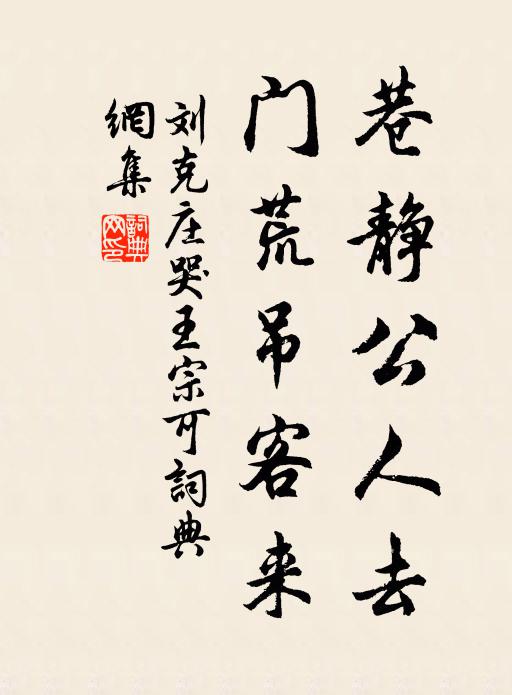 巷静公人去
门荒吊客来
刘克庄哭王宗可詞典
網集
詞典
网印